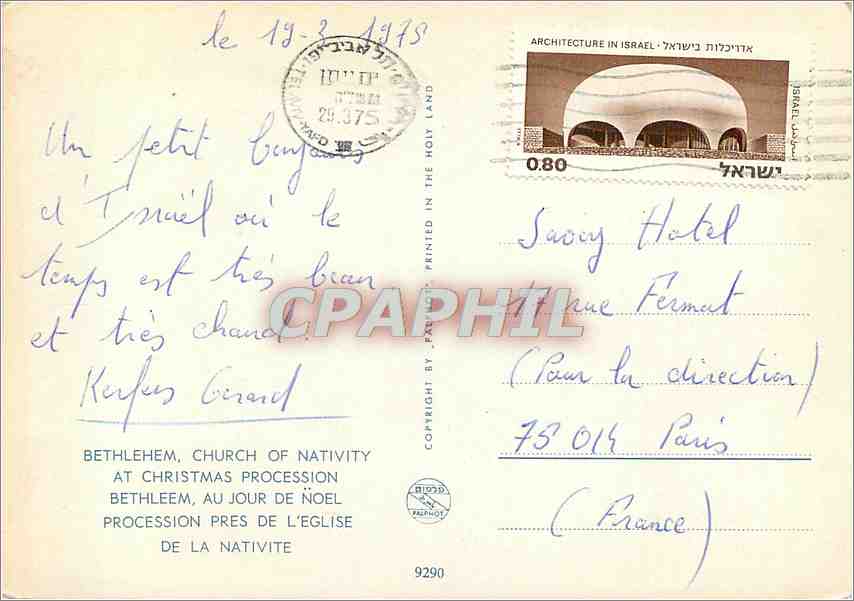 le 19-3 1975
תל אביב-יפו
TEL AVIV-YAFO
29.3.75
ARCHITECTURE IN ISRAEL · אדריכלות בישראל
ISRAEL
0.80
ישראל
Un petit bonjour
d'Israël où le
temps est très beau
et très chaud.
Gérard
BETHLEHEM, CHURCH OF NATIVITY
AT CHRISTMAS PROCESSION
BETHLEEM, AU JOUR DE NOEL
PROCESSION PRES DE L'EGLISE
DE LA NATIVITE
COPYRIGHT BY „PALPHOT" PRINTED IN THE HOLY LAND
CPAPHIL
פלפוט
PALPHOT
9290
Savoy Hotel
17 rue Fermat
(Pour la direction)
75 014 Paris
(France)